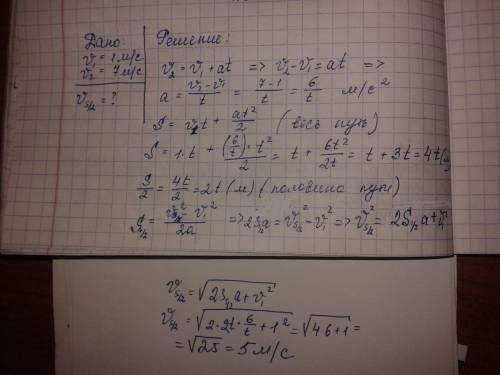 Дано:
v₁ = 1 м/с
v₂ = 7 м/с
v_{S/2} = ?
Решение:
v₂ = v₁ + at => v₂ - v₁ = at =>
a = (v₂ - v₁)/t = (7 - 1)/t = 6/t м/с²
S = v₁t + at²/2 (весь путь)
S = 1·t + (6/t)·t²/2 = t + 6t²/2t = t + 3t = 4t (м)
S/2 = 4t/2 = 2t (м) (половина пути)
S_{1/2} = (v_{S/2}² - v₁²)/2a => 2S_{1/2}a = v_{S/2}² - v₁² => v_{S/2}² = 2S_{1/2}a + v₁²
v_{S/2} = √(2S_{1/2}a + v₁²)
v_{S/2} = √(2·2t·6/t + 1²) = √(4·6+1) =
= √25 = 5 м/с